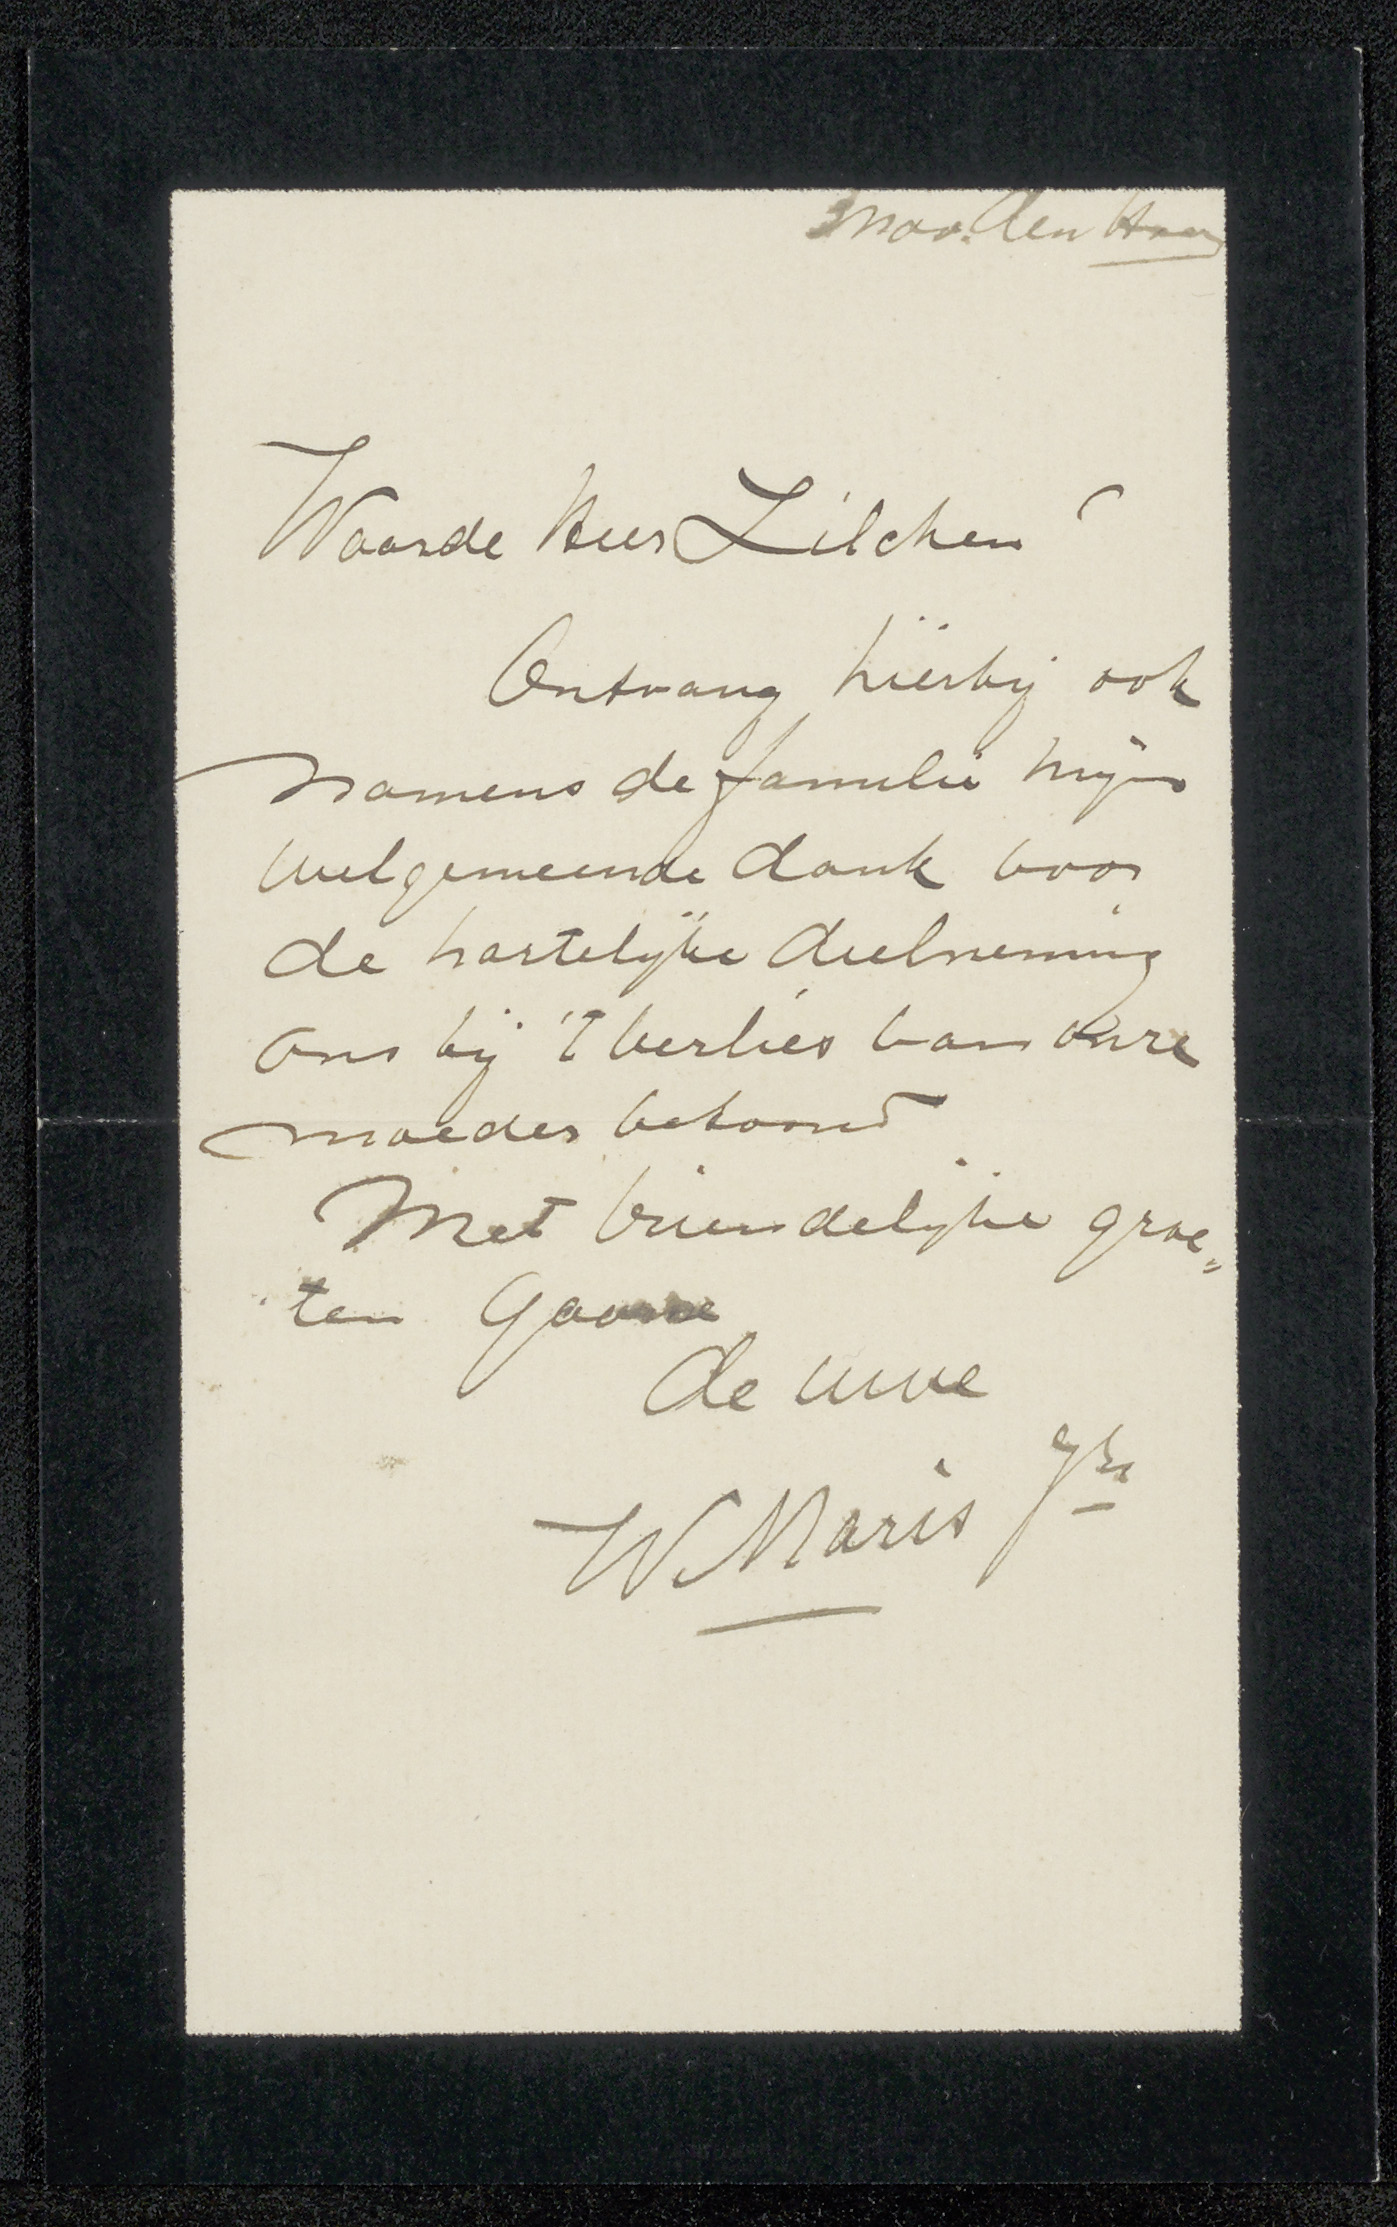 Nov. Den Haag
Waarde Heer Zilcken
Ontvang hierbij ook
namens de familie mijn
welgemeende dank voor
de hartelijke deelneming
ons bij 't verlies van onze
moeder betoond
Met vriendelijke groe„
ten Gaarne
de uwe
W. Maris Jbz